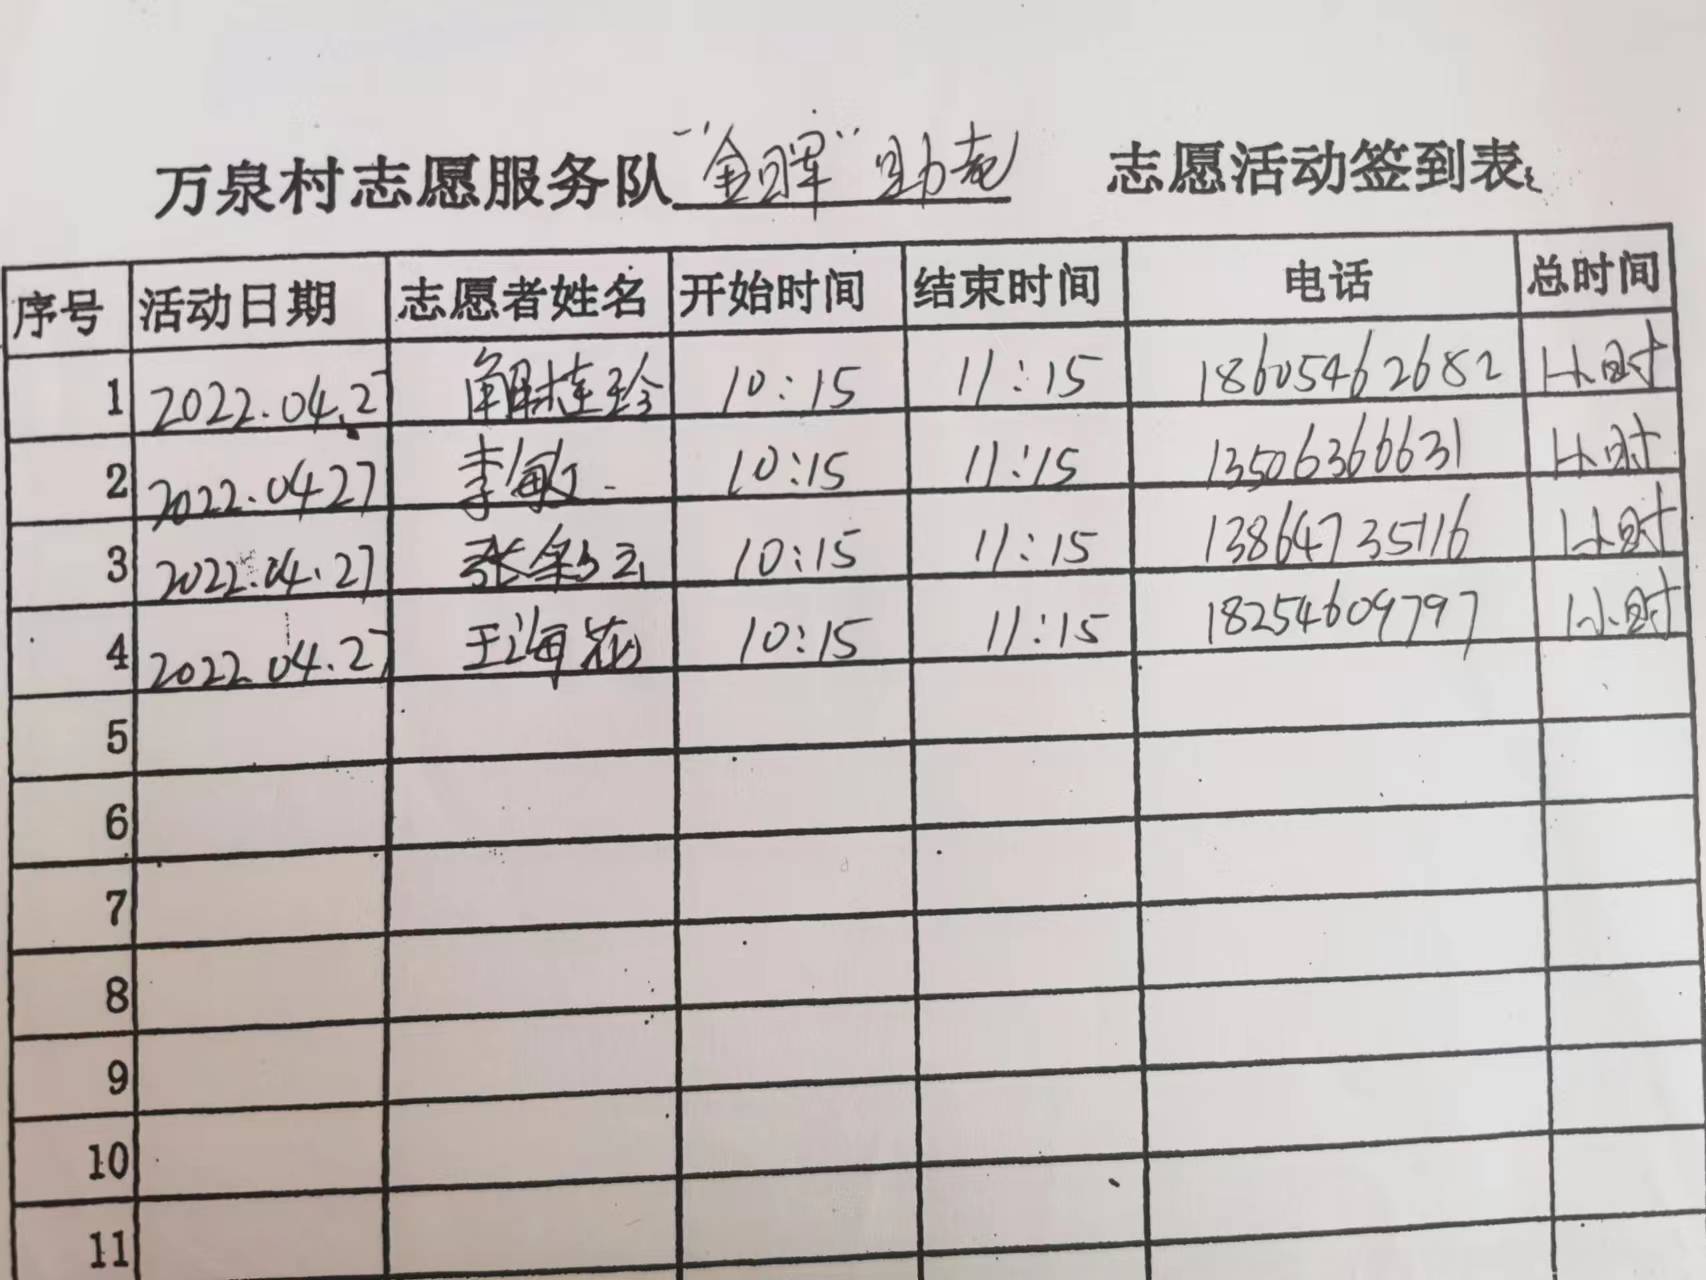 万泉村志愿服务队“金晖”助老 志愿活动签到表
序号 活动日期 志愿者姓名 开始时间 结束时间 电话 总时间
1 2022.04.27 桂珍 10:15 11:15 18605462682 1小时
2 2022.0427 李敏 10:15 11:15 13506366631 1小时
3 2022.04.27 张 10:15 11:15 13864735116 1小时
4 2022.04.27 王海花 10:15 11:15 18254609797 1小时
5
6
7
8
9
10
11